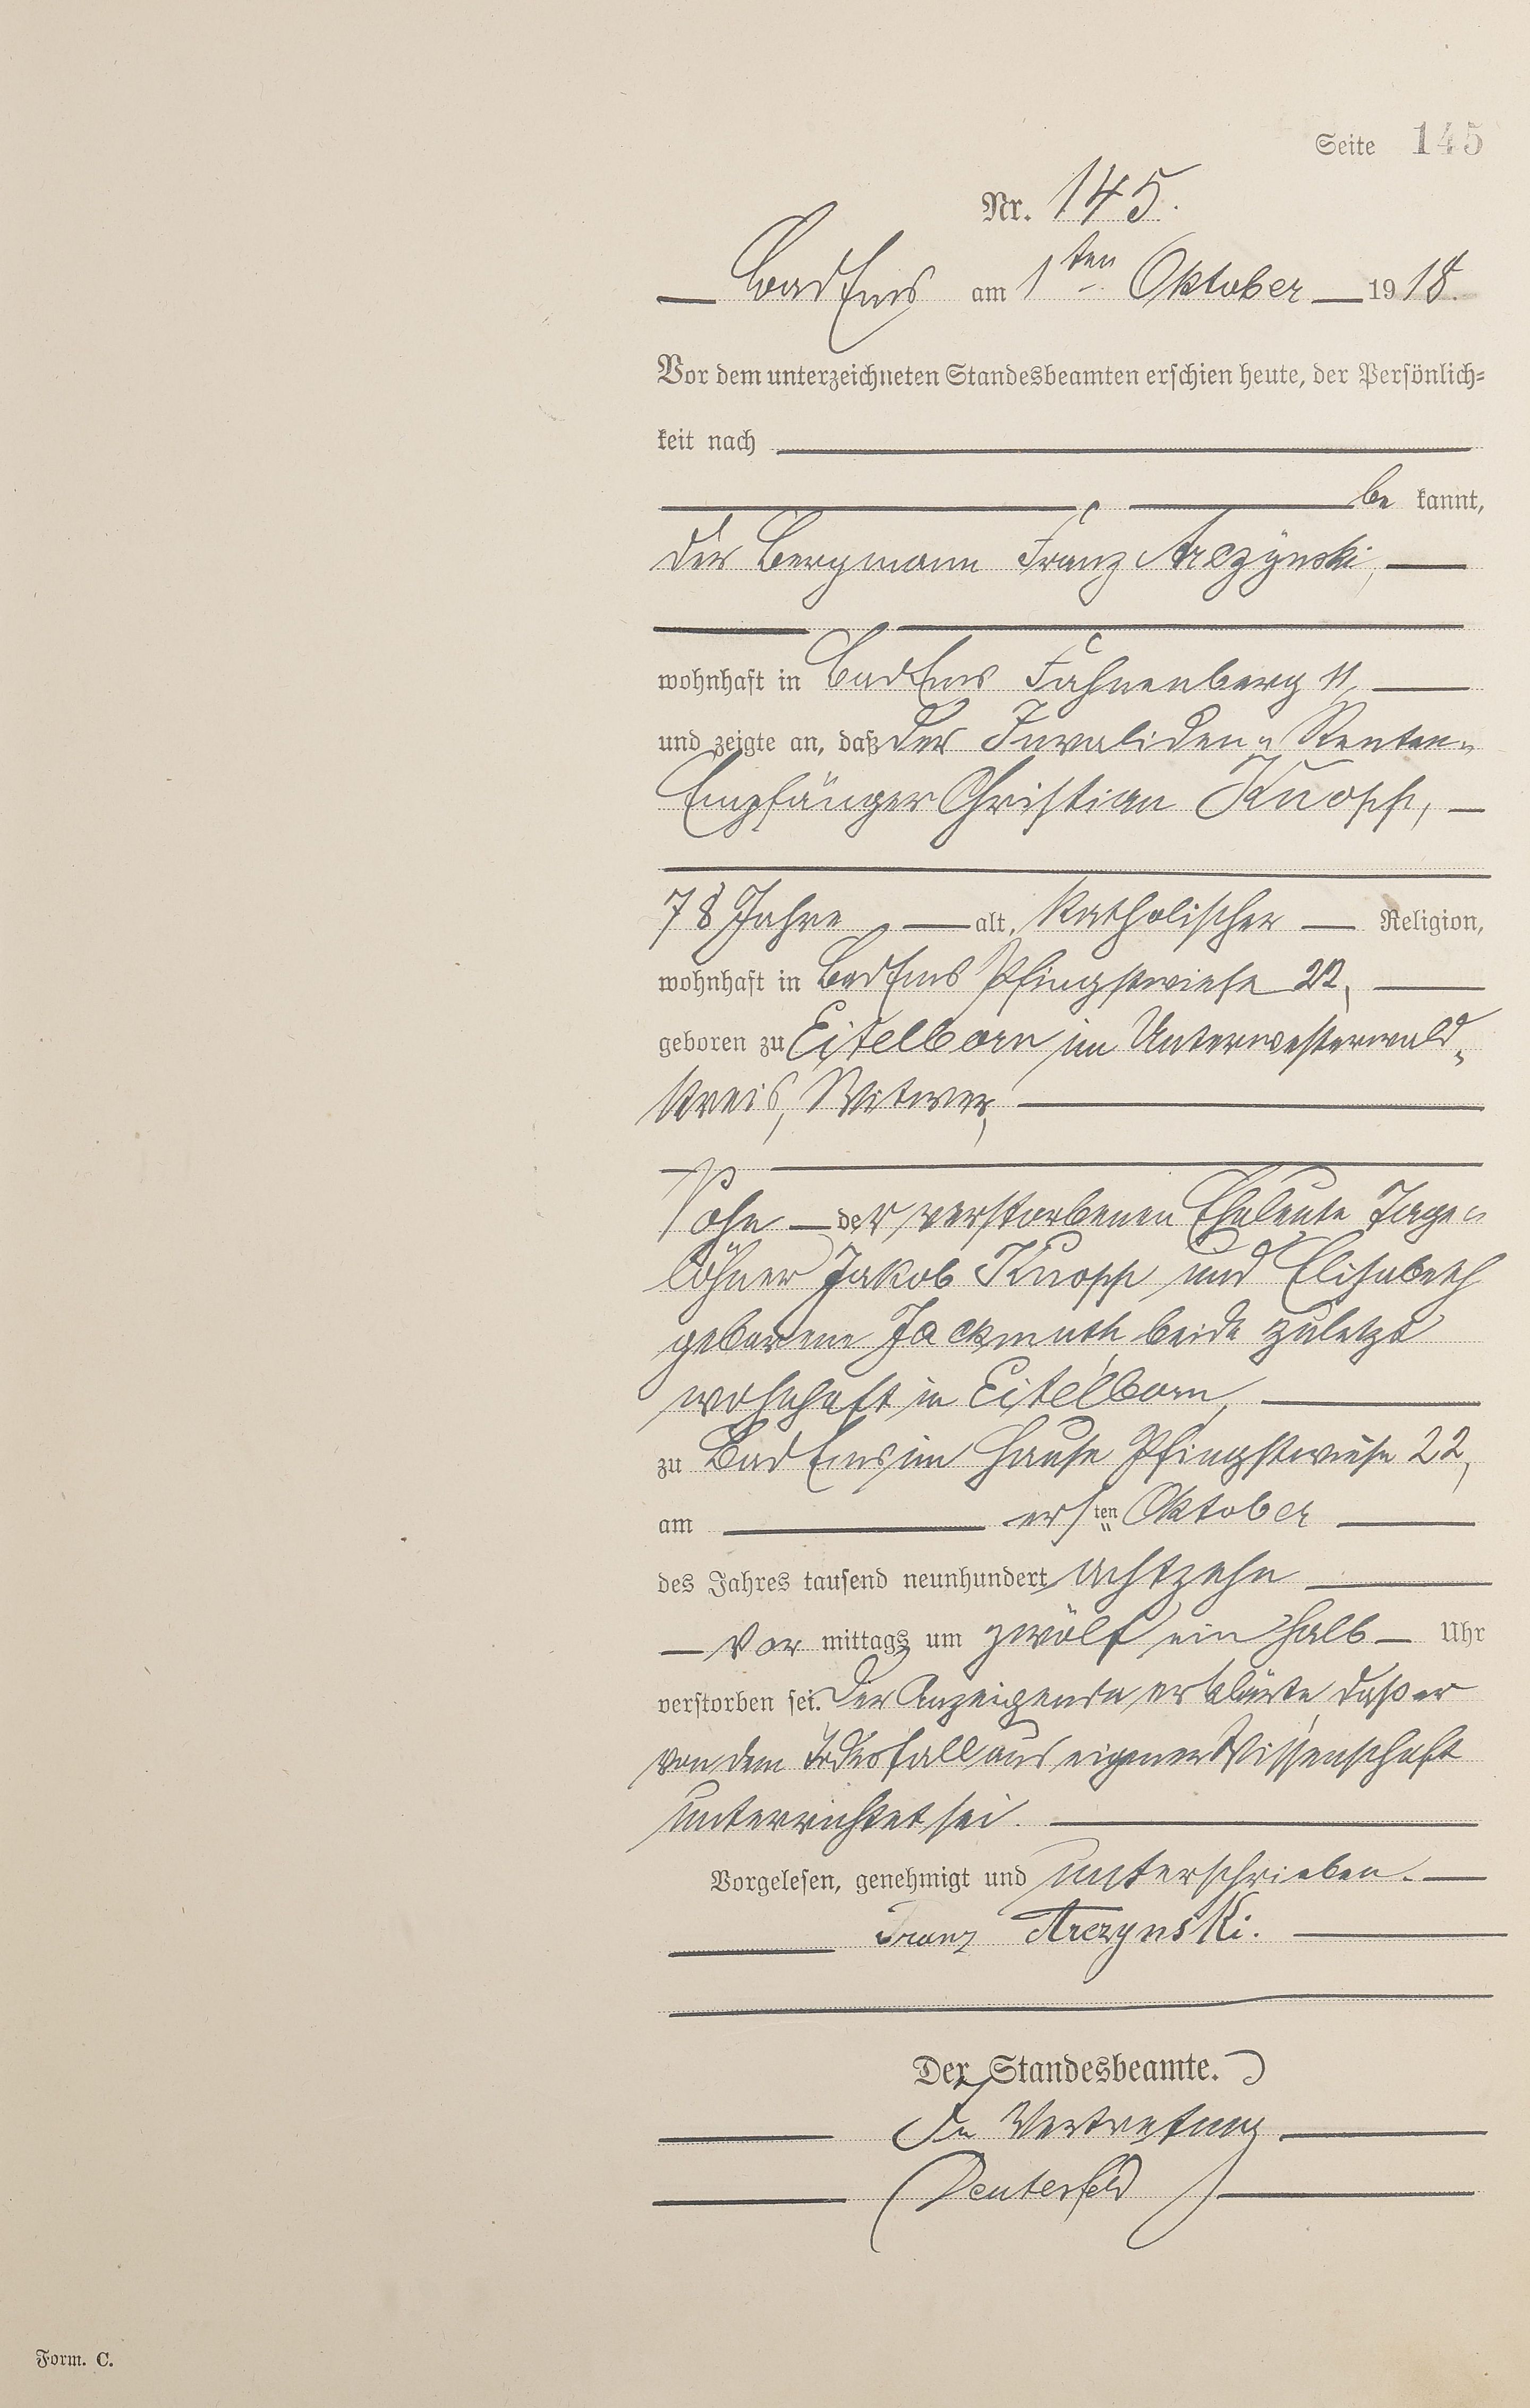 Seite 145
Nr. 145.
Bad Ems am 1ten Oktober 1918.
Vor dem unterzeichneten Standesbeamten erschien heute, der Persönlich=
keit nach
be kannt,
der Bergmann Franz Arczynski,
wohnhaft in Bad Ems Fahnenberg 11,
und zeigte an, daß der Invaliden= Renten=
Empfänger Christian Knopp,
78 Jahre alt, katholischer Religion,
wohnhaft in Bad Ems Pfingstwiese 22,
geboren zu Eitelborn im Unterwesterwald=
kreis, Witwer,
Sohn der verstorbenen Eheleute Tage=
löhner Jakob Knopp und Elisabeth
geborene Jackmuth beide zuletzt
wohnhaft in Eitelborn,
zu Bad Ems im Hause Pfingstwiese 22,
am ersten Oktober
des Jahres tausend neunhundert achtzehn
Vor mittags um zwölf ein halb Uhr
verstorben sei. Der Anzeigende erklärte, daß er
von dem Todesfall aus eigener Wissenschaft
unterrichtet sei.
Vorgelesen, genehmigt und unterschrieben.
Franz Arczynski.
Der Standesbeamte.
In Vertretung
Deuterfeld
Form. C.